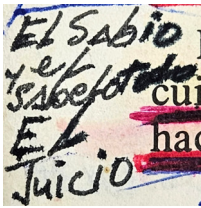 El Sabio
y el
sabelotodo
El
Juicio
cui
hac